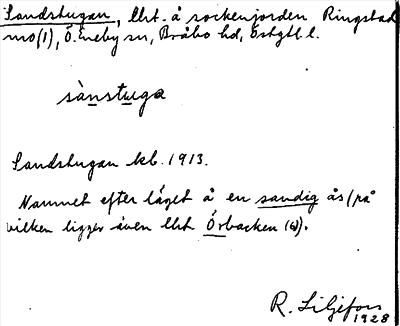 Sandstugan, lht. å sockenjorden Ringstad
mo(1), Ö. Eneby sn, Bråbo hd, Östgtl l.
sànstuga
Sandstugan kb. 1913.
Namnet efter läget å en sandig ås (på
vilken ligger även lht Örbacken (a)).
R. Liljefors
1928